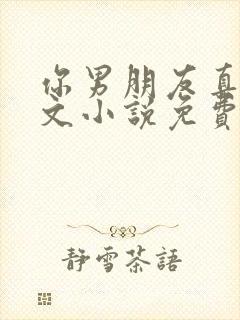 你男朋友真
文小説免費
靜雪茶語